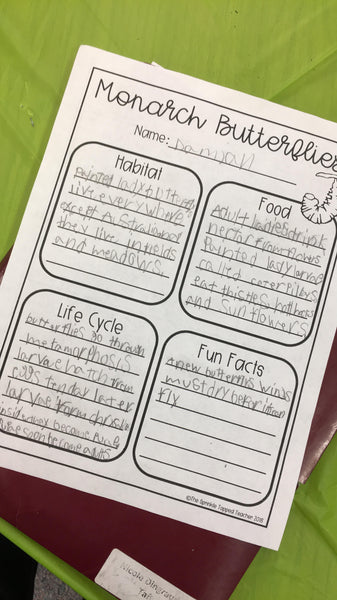 Monarch Butterflies
Name: Damian
Habitat
Painted lady butterflys
live everywhere
except Australia and
they live in fields
and meadows
Food
Adult ladies drink
nectar from flowers
Painted lady larvae
called caterpillars
eat thistles hollhocks
and sunflowers
Life Cycle
butterflies go through
metamorphosis
larvae hatch from
eggs ten day later
larvae form chrisilis
inside they become
soon become adults
Fun Facts
a new butterflis wings
must dry befor it can
fly
©The Sprinkle Topped Teacher 2018
Nicola